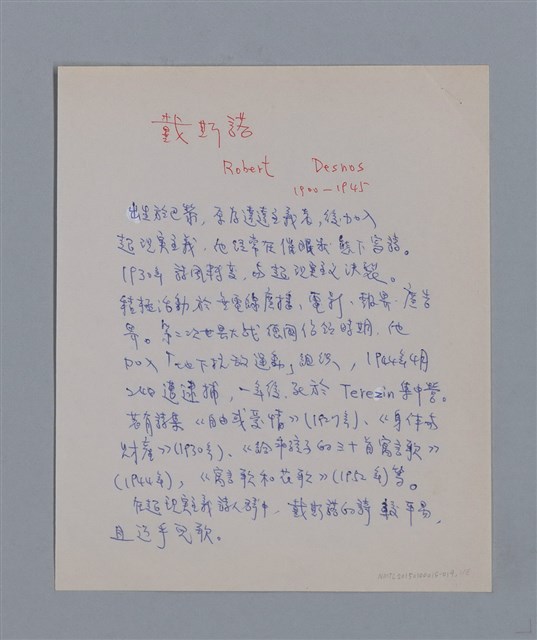 戴斯諾
Robert Desnos
1900—1945
出生於巴黎，原為達達主義者，後加入
超現實主義，他經常在催眠狀態下寫詩。
1930年詩風轉變，與超現實主义決裂。
積極活動於無電線廣播，電影，報界，廣告
界。第二次世界大战德國佔領時期，他
加入「地下抗敌運動」組織，1944年4月
遭逮捕，一年後，死於 Terezin 集中營。
著有詩集《自由或愛情》(1927年)、《身体与
財產》(1930年)、《給乖孩子的三十首寓言歌》
(1944年)，《寓言歌和花歌》(1952年)等。
在超現實主義詩人群中，戴斯諾的詩較平易，
且近乎兒歌。